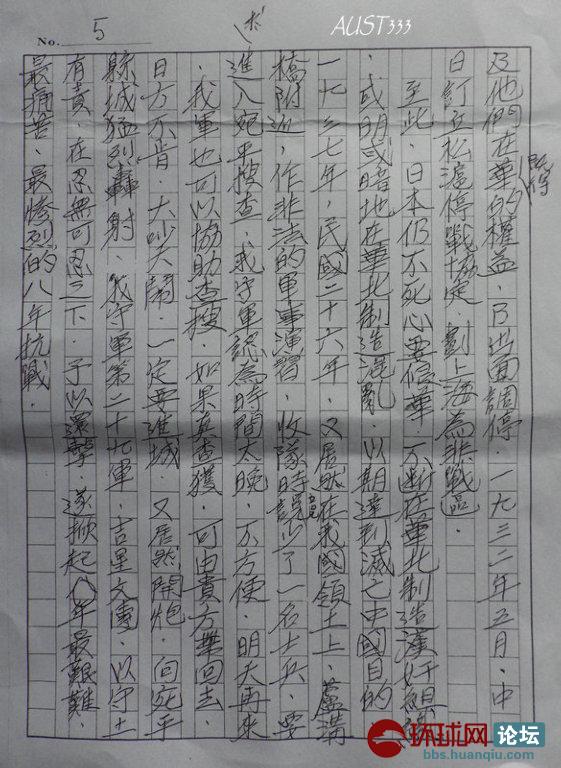 No. 5
AUST333
既得
及他們在華的權益，乃出面調停。一九三二年五月，中
日訂立松滬停戰協定，劃上海為非戰區。
至此，日本仍不死心要侵華，不斷在華北制造漢奸組織
，或明或暗地在華北制造混亂，以期達到滅亡中國目的
一七三七年，民國二十六年，又居然在我國領土上，蘆溝
橋附近，作非法的軍事演習，收隊時說少了一名士兵，要
進入宛平搜查，我守軍認為時間太晚，不方便，明天再來
，我軍也可以協助查搜，如果真查獲，可由貴方帶回去。
日方不肯，大吵大鬧，一定要進城，又居然開炮，向宛平
縣城猛烈轟射，我守軍第二十九軍，吉星文團，以守土
有責，在忍無可忍之下，予以還擊，遂掀起八年最艱難、
最痛苦、最慘烈的八年抗戰。
环球网 论坛
bbs.huanqiu.com